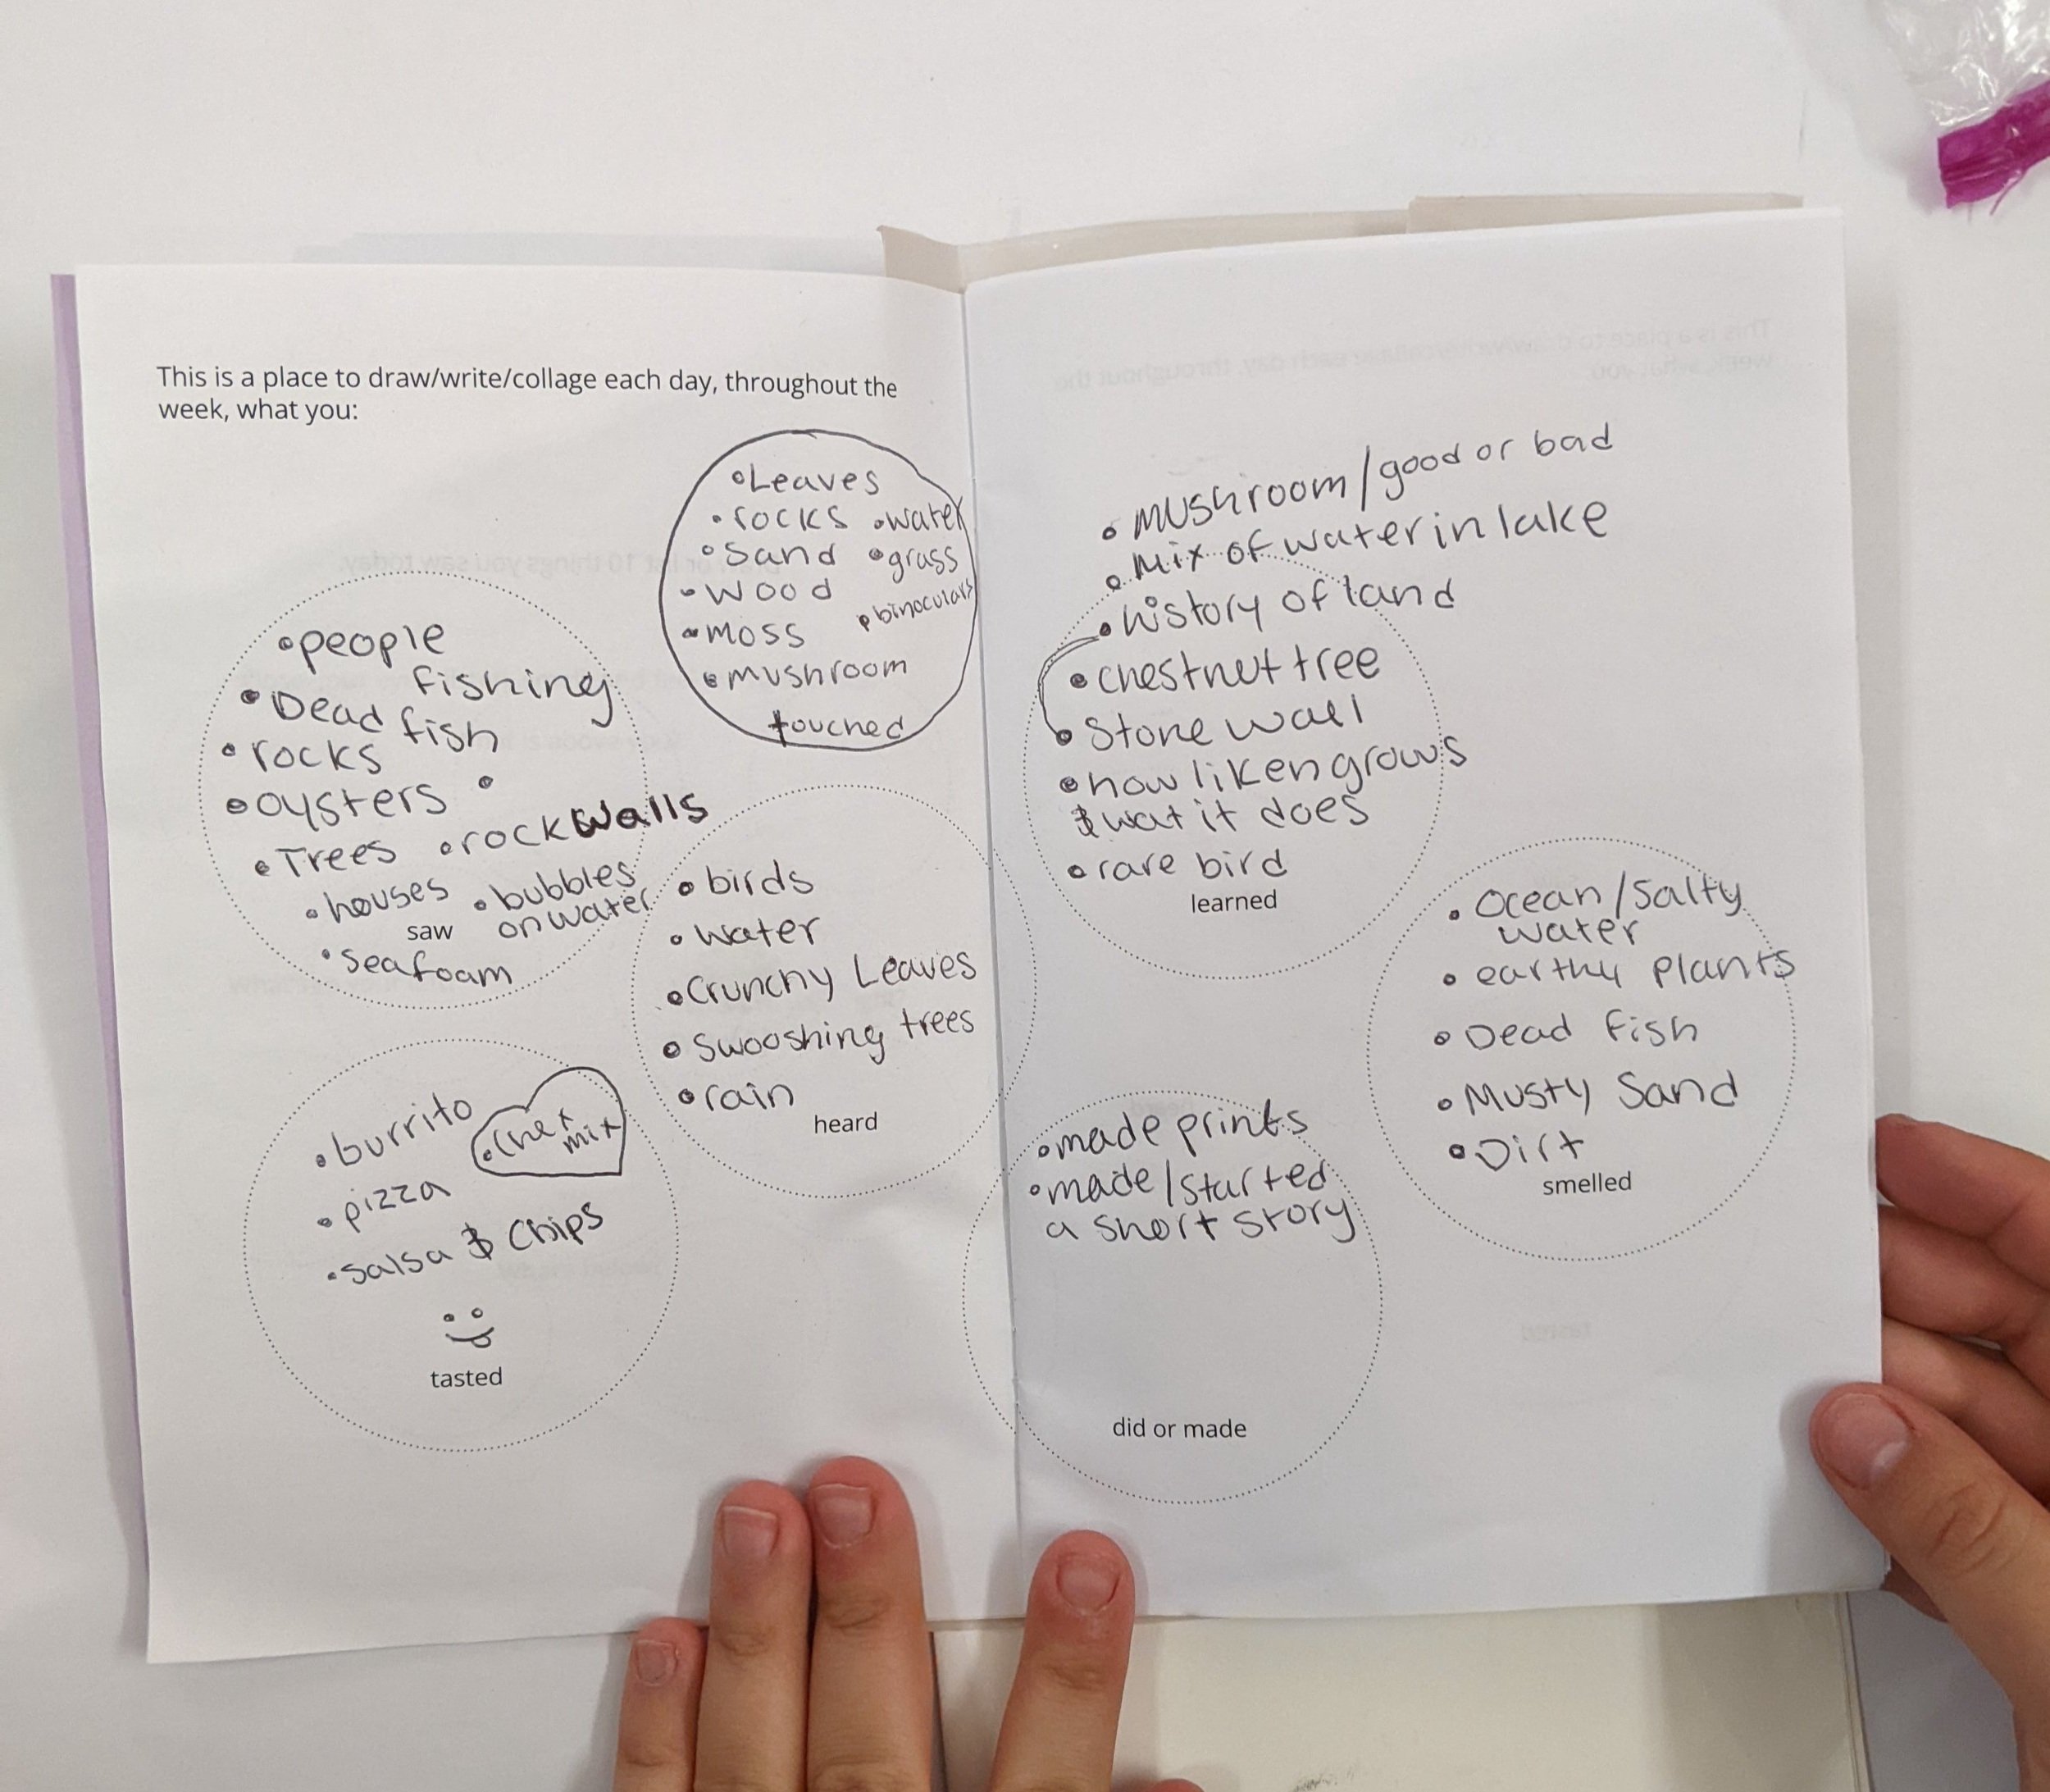 This is a place to draw/write/collage each day, throughout the
week, what you:
• Leaves
• rocks • water
• Sand • grass
• wood • binoculars
• moss
• mushroom
touched
• people
fishing
• Dead fish
• rocks
• oysters •
• Trees • rock walls
• houses • bubbles
on water
saw
• seafoam
• birds
• water
• Crunchy Leaves
• Swooshing trees
• rain
heard
• burrito • Chex
mix
• pizza
• salsa & Chips
tasted
• mushroom/good or bad
• Mix of water in lake
• history of land
• chestnut tree
• Stone wall
• how liken grows
& wat it does
• rare bird
learned
• Ocean/Salty
water
• earthy plants
• Dead fish
• Musty Sand
• Dirt
smelled
• made prints
• made/started
a short story
did or made